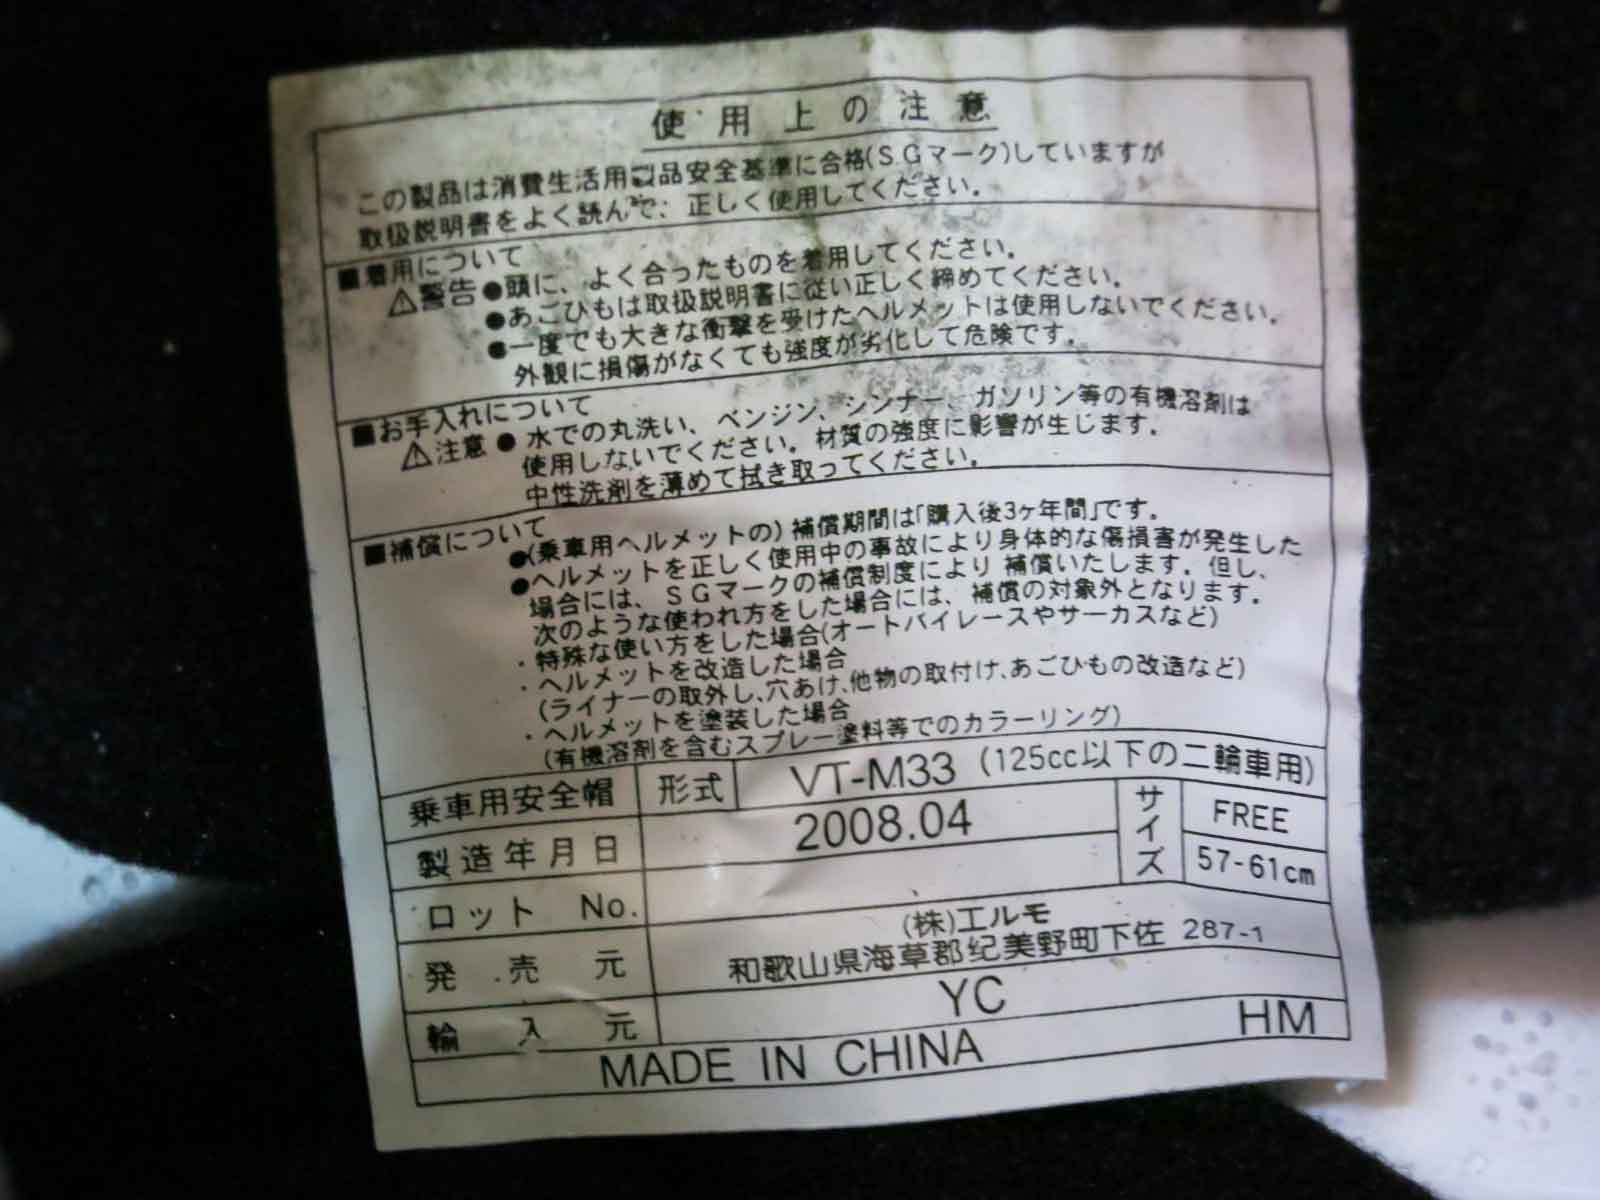 使用上の注意
この製品は消費生活用製品安全基準に合格(SGマーク)していますが
取扱説明書をよく読んで、正しく使用してください。
■着用について
⚠警告 ●頭に、よく合ったものを着用してください。
●あごひもは取扱説明書に従い正しく締めてください。
●一度でも大きな衝撃を受けたヘルメットは使用しないでください。
外観に損傷がなくても強度が劣化して危険です。
■お手入れについて
⚠注意 ●水での丸洗い、ベンジン、シンナー、ガソリン等の有機溶剤は
使用しないでください。材質の強度に影響が生じます。
中性洗剤を薄めて拭き取ってください。
■補償について
●(乗車用ヘルメットの)補償期間は「購入後3ヶ年間」です。
●ヘルメットを正しく使用中の事故により身体的な傷損害が発生した
場合には、SGマークの補償制度により補償いたします。但し、
次のような使われ方をした場合には、補償の対象外となります。
・特殊な使い方をした場合(オートバイレースやサーカスなど)
・ヘルメットを改造した場合
(ライナーの取外し、穴あけ、他物の取付け、あごひもの改造など)
・ヘルメットを塗装した場合
(有機溶剤を含むスプレー塗料等でのカラーリング)
乗車用安全帽 形式 VT-M33 (125cc以下の二輪車用)
製造年月日 2008.04 サイズ FREE
57-61cm
ロット No.
発売元 (株)エルモ
和歌山県海草郡紀美野町下佐々287-1
輸入元 YC
MADE IN CHINA HM